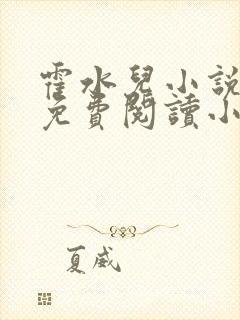 霍水兒小説
免費閱讀小
夏威